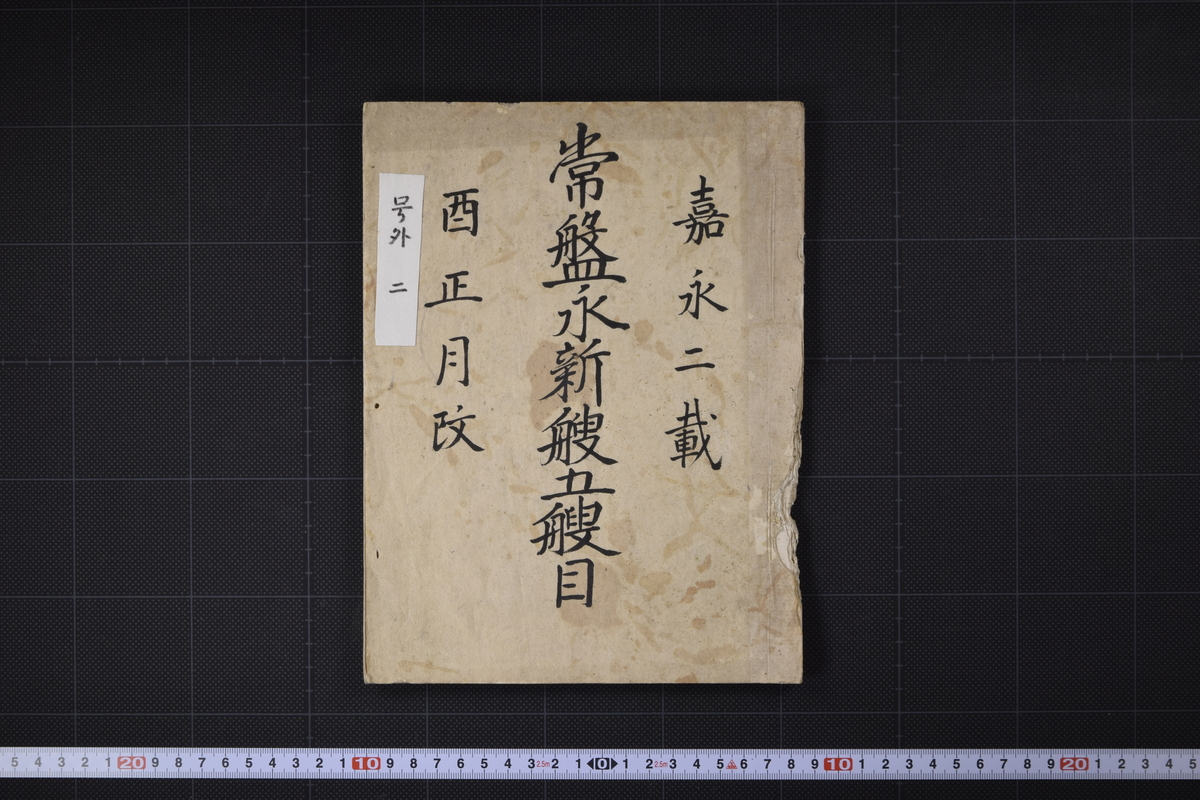 嘉永二載
常盤永新艘五艘目
酉正月改
号外 二
5 4 3 2 1 20 9 8 7 6 5 4 3 2 1 10 9 8 7 6 5 4 3 2.5m 2 1 0 1 2 2.5m 3 4 5 6 7 8 9 10 1 2 3 4 5 6 7 8 9 20 1 2 3 4 5